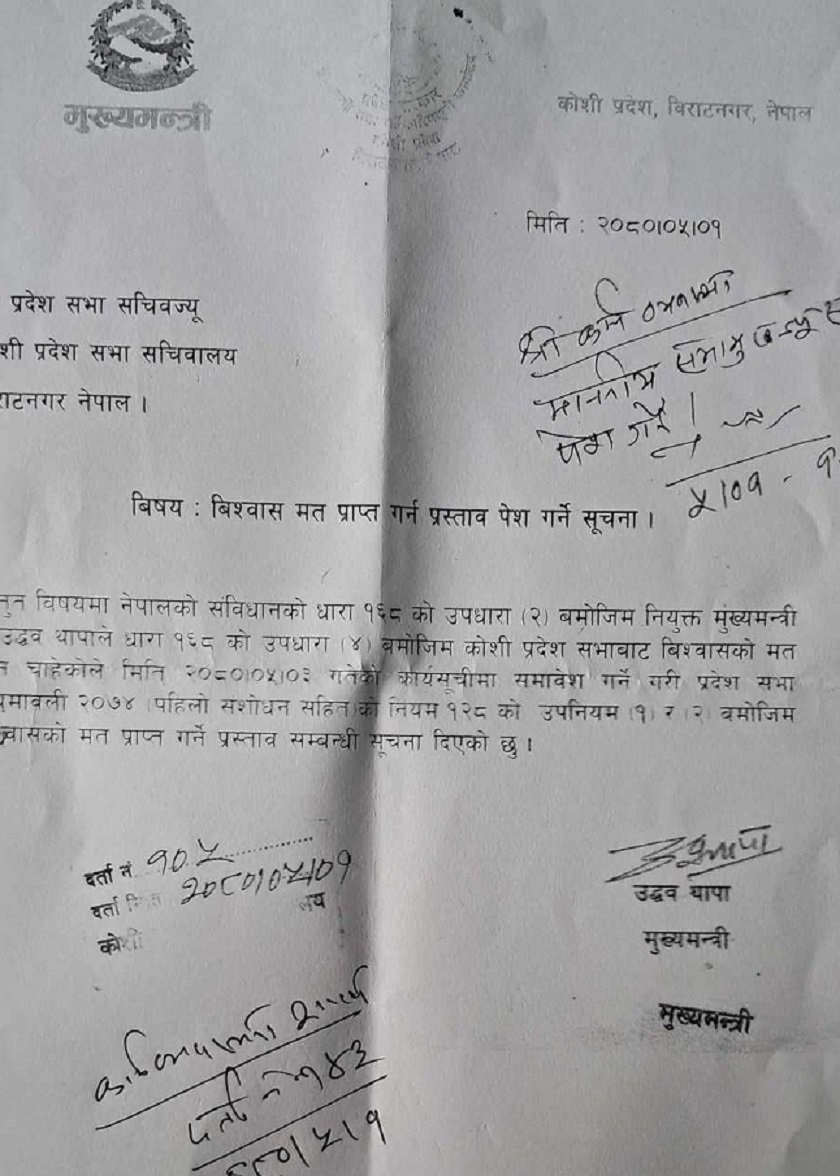 मुख्यमन्त्री
कोशी प्रदेश, विराटनगर, नेपाल
मिति : २०८०।०५।०१
प्रदेश सभा सचिवज्यू
शी प्रदेश सभा सचिवालय
राटनगर नेपाल ।
श्री
माननीय सभामुखज्यू
पेश गर्ने ।
५।०१
बिषय : बिश्वास मत प्राप्त गर्न प्रस्ताव पेश गर्ने सूचना ।
तुत विषयमा नेपालको संविधानको धारा १६८ को उपधारा (२) बमोजिम नियुक्त मुख्यमन्त्री
उद्धव थापाले धारा १६८ को उपधारा (४) बमोजिम कोशी प्रदेश सभाबाट बिश्वासको मत
न चाहेकोले मिति २०८०।०५।०३ गतेको कार्यसूचीमा समावेश गर्ने गरी प्रदेश सभा
यमावली २०७४ (पहिलो संशोधन सहित) को नियम १२८ को उपनियम (१) र (२) बमोजिम
वासको मत प्राप्त गर्ने प्रस्ताव सम्बन्धी सूचना दिएको छु ।
दर्ता नं. १०५
दर्ता मिति २०८०।०५।०१
कोशी
उद्धव थापा
मुख्यमन्त्री
मुख्यमन्त्री
दर्ता नं १४३